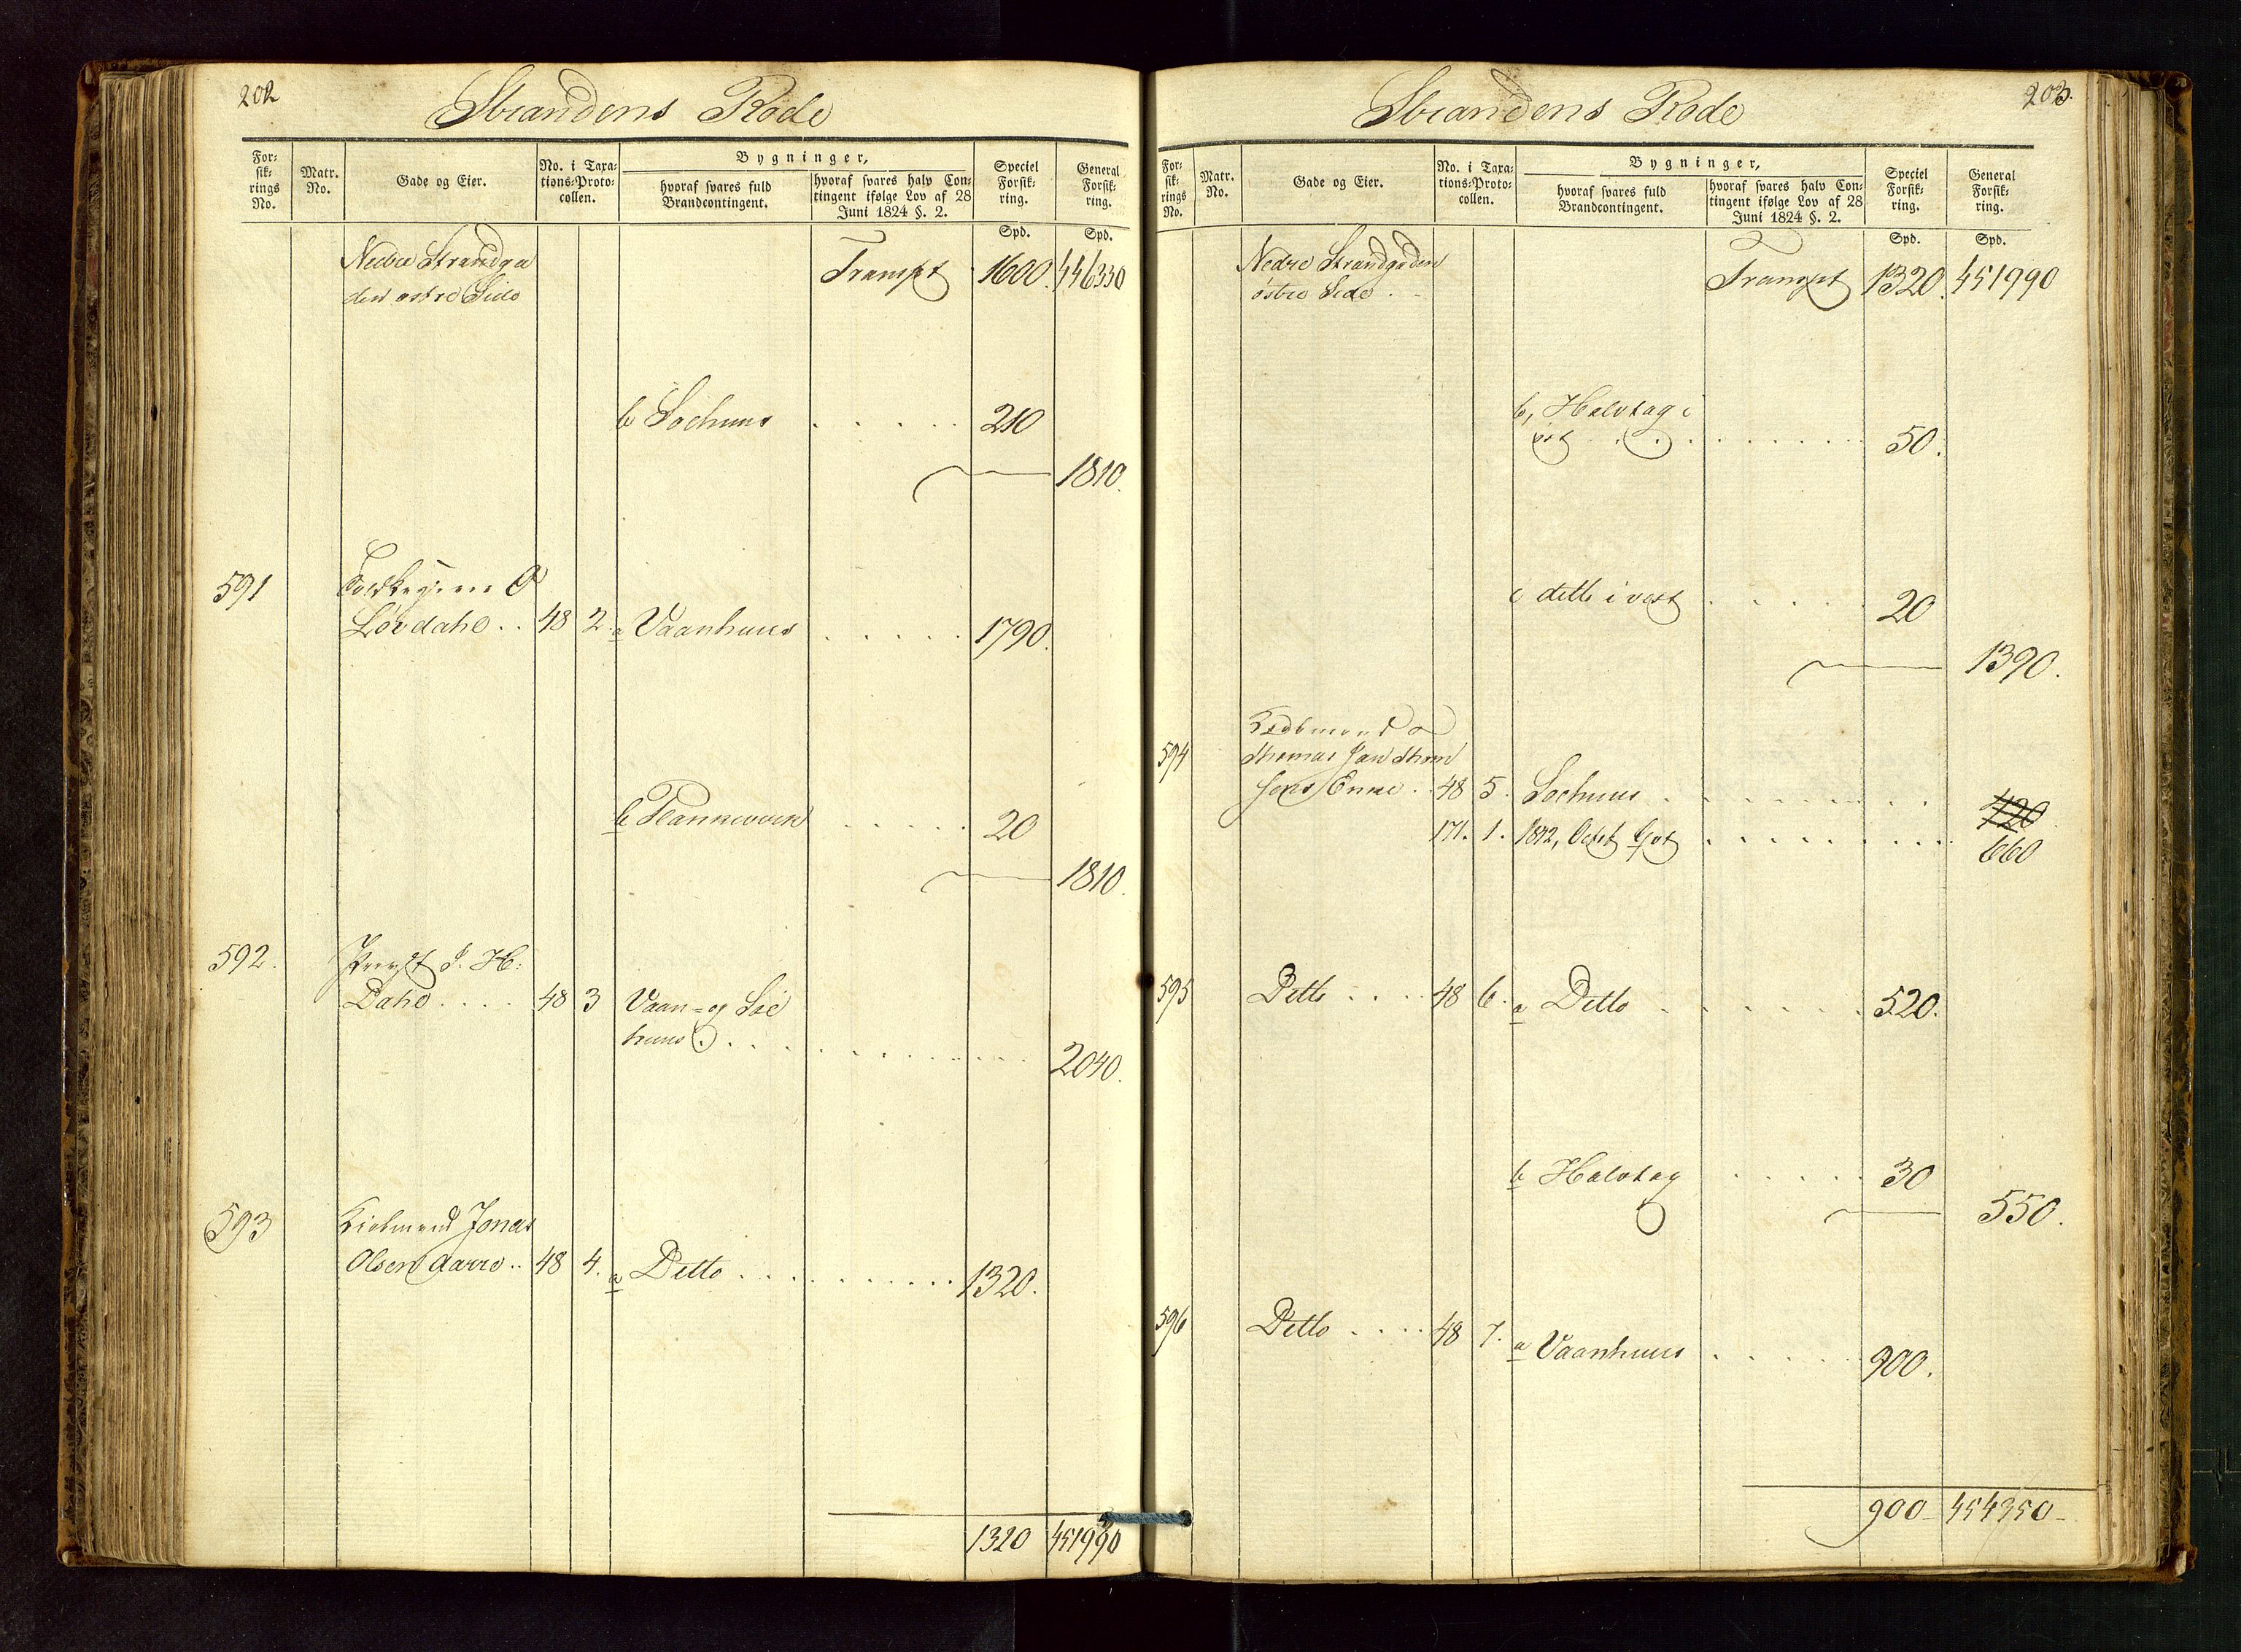 202
Strandens Rode
For:
sik:
rings
No.
Matr.
No.
Gade og Eier.
No. i Taxa:
tions:Proto:
collen.
Bygninger,
hvoraf svares fuld
Brandcontingent.
hvoraf svares halv Con:
tingent ifølge Lov af 28
Juni 1824 §. 2.
Speciel
Forsik:
ring.
General
Forsik:
ring.
Spd. Spd.
Nedre Strandga
den østre Side
Transpt 1600. 446330
b Søehuus . . . . . 210
1810.
591
Løvdahl . . 48 2. a Vaanhuus . . . . . 1790.
b . . . . . 20
1810.
592. Provst J. H.
Dahl . . . . 48 3 Vaan- og Søe
huus . . . . . . . . . . 2040.
593 Kiøbmand Jonas
Olsen Aarre . . 48 4. a Detto . . . . . . . . . . 1320.
1320 451990
203.
Strandens Rode
For:
sik:
rings
No.
Matr.
No.
Gade og Eier.
No. i Taxa:
tions:Proto:
collen.
Bygninger,
hvoraf svares fuld
Brandcontingent.
hvoraf svares halv Con:
tingent ifølge Lov af 28
Juni 1824 §. 2.
Speciel
Forsik:
ring.
General
Forsik:
ring.
Spd. Spd.
Nedre Strandgaden
østre Side . -
Transpt 1320. 451990
b, Halvtag i
øst . . . . . . . . . . 50.
c detto i vest . . . . . 20
1390.
Kiøbmand
594 Thomas Jan Thom
sens Enke . 48 5. Søehuus . . . . . . . . 420
171. 1. 1842, Octbr . . . . . . . . . 660
595 Detto . . . . 48 6. a Detto . . . . . . 520.
b Halvtag . . . . . 30
550.
596 Detto . . . . 48 7. a Vaanhuus . . . . . 900.
900 - 454350 -